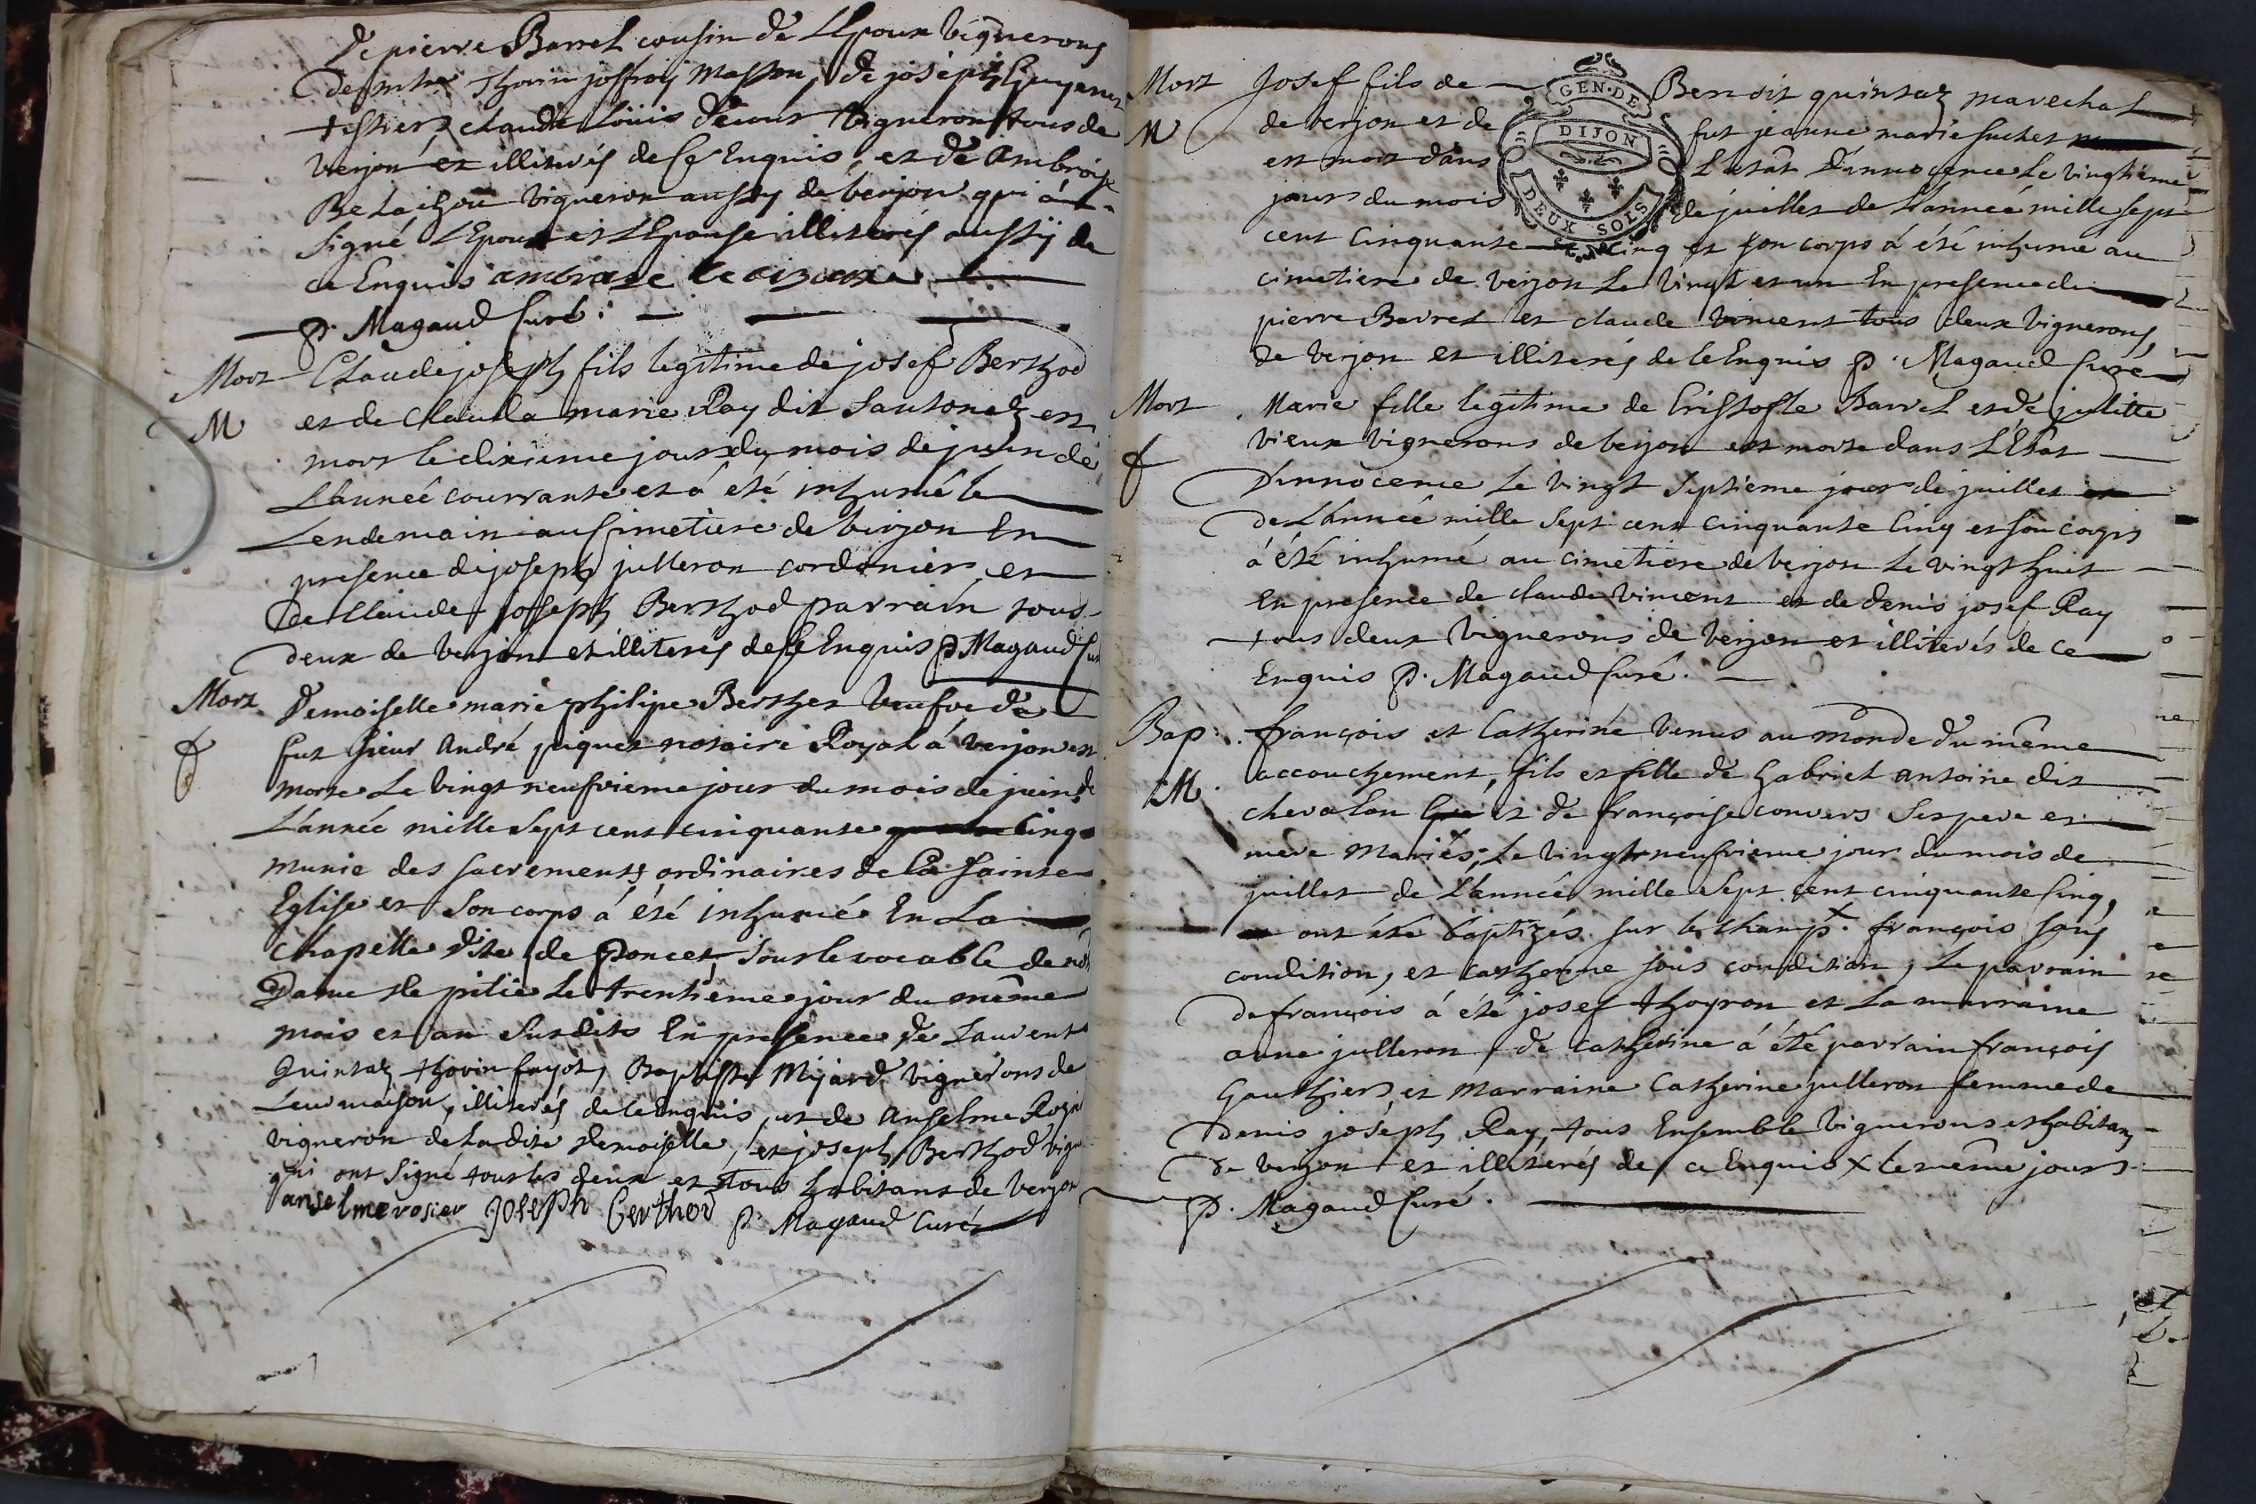 de pierre Barrel cousin de LEpoux vignerons
Thovin joffroij Masson, de joséph
claude Louis vigneron tous de
verjon et illiterés de Ce Enquis, et de Ambroise
vigneron aussy de verjon qui á
signé LEpoux et LEpouse illiterés aussÿ de
ce Enquis
P. Magaud Curé.
Mort Claude joseph fils legitime de josef Berthod
M et de Claudia marie Ray dit Santonaz est
mort le dixieme jour du mois de juin de
Lánneé courrante et á été inhumé le
Lendemain au Cimetiere de verjon En
presence de joseph julleron cordonier et
de Claude josseph Berthod parrain tous
deux de verjon et illiterés de Ce Enquis P. Magaud Cu
Mort Demoiselle marie philipe Berthet veufve de
f fut sieur André piquet notaire Royal á verjon est
morte Le vingt neufvieme jour du mois de juin de
Lánnée mille sept cent cinquante Cinq
munie des sacrements ordinaires de La sainte
Eglise et Son corps á été inhumé En La
Chapelle dite de Poncet sous le vocable de
Dame de pitié Le trentieme jour du même
mois et an Susdits En presence de Laurent
Quintaz Thovin fayot, Baptiste Mijard vignerons de
Leur maison, illiterés de ce Enquis, et de Anselme
vigneron de Ladite demoiselle, et joseph Berthod
qui ont Signé tous les deux et tous habitants de Verjon
anselme rosier Joseph berthod P. Magaud Curé
Mort Josef fils de Benoit quintaz marechal
M de verjon et de fut jeanne marie suchet
est mort dans L'état d'innocence Le vingtieme
jour du mois de juillet de Lánneé mille sept
cent cinquante cinq et son corps á été inhumé au
cimetiere de verjon Le vingt et un En presence de
pierre Barrel et claude vincent tous deux vignerons
de verjon et illiterés de Ce Enquis P. Magaud Curé
Mort Marie fille legitime de Cristofle Barrel et de julitte
f vieux vignerons de verjon est morte dans L'Etat
D'innocence Le vingt Septieme jour de juillet
de Lánneé mille Sept cent cinquante Cinq et son corps
á été inhumé au cimetiere de verjon Le vingt huit
En presence de claude vincent et de denis josef Ray
tous deux vignerons de verjon et illiterés de ce
Enquis P. Magaud Curé.
Bap. françois et Catherine venus au monde du même
M. accouchement, fils et fille de Gabriel antoine dit
chevalon et de françoise convers Ses pere et
mere Mariés, Le vingt neufvieme jour du mois de
juillet de Lánneé mille Sept cent cinquante Cinq,
ont été baptizés sur le champ x. françois sans
condition, et catherine sous condition, Le parrain
de françois á été josef thoyron et La marraine
anne julleron, de catherine á été parrain françois
Gauthier, et Marraine Catherine julleron femme de
Denis joséph Ray, tous Ensemble vignerons et habitans
de verjon et illiterés de ce Enquis x le même jour
P. Magaud Curé.
GEN. DE
DIJON
DEUX SOLS